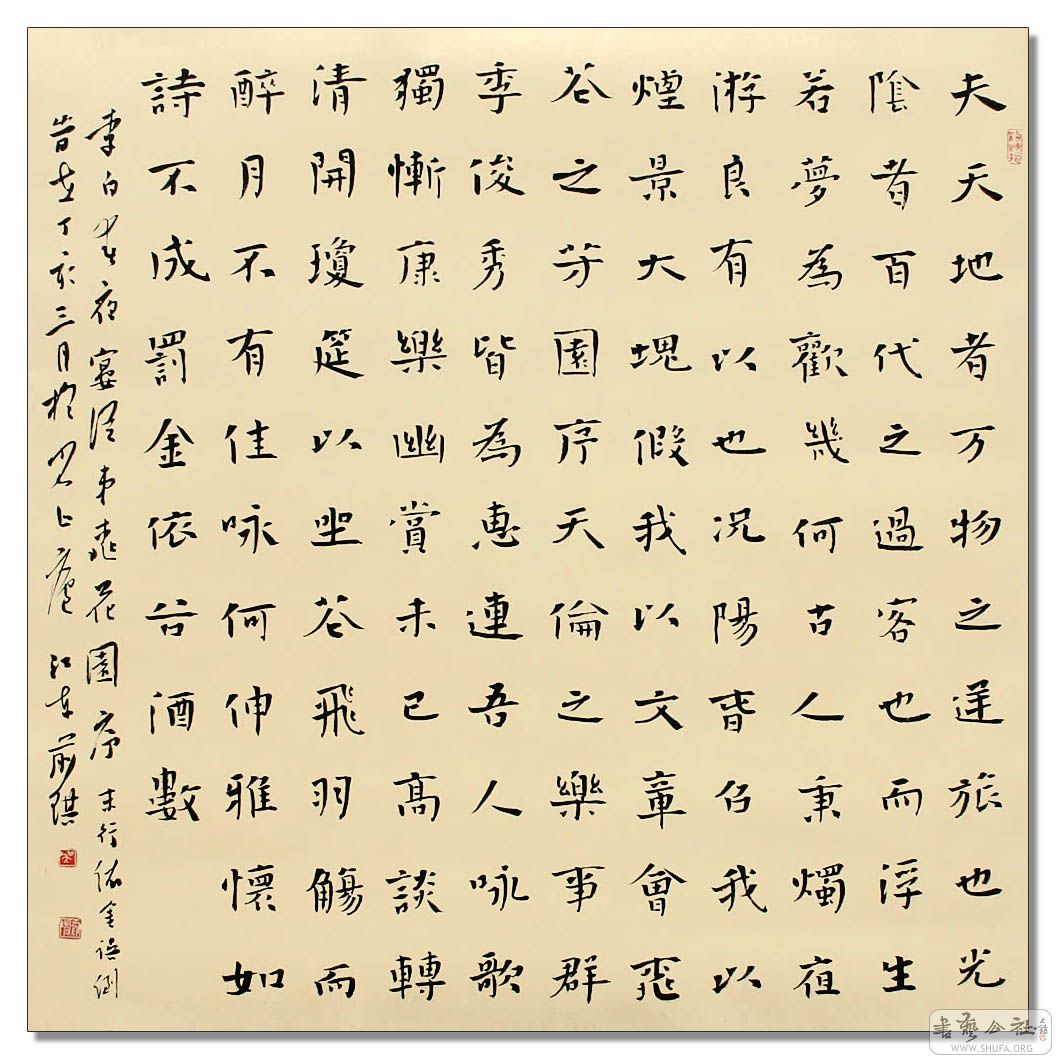 夫天地者万物之逆旅也光
陰者百代之過客也而浮生
若夢為歡幾何古人秉燭夜
游良有以也况陽春召我以
煙景大塊假我以文章會桃
花之芳園序天倫之樂事群
季俊秀皆為惠連吾人咏歌
獨慚康樂幽賞未已高談轉
清開瓊筵以坐花飛羽觴而
醉月不有佳咏何伸雅懷如
詩不成罰金依谷酒數
李白春夜宴從弟桃花園序 末行依金誤倒
旹在丁亥三月於廬 江東
書藝公社
WWW.SHUFA.ORG